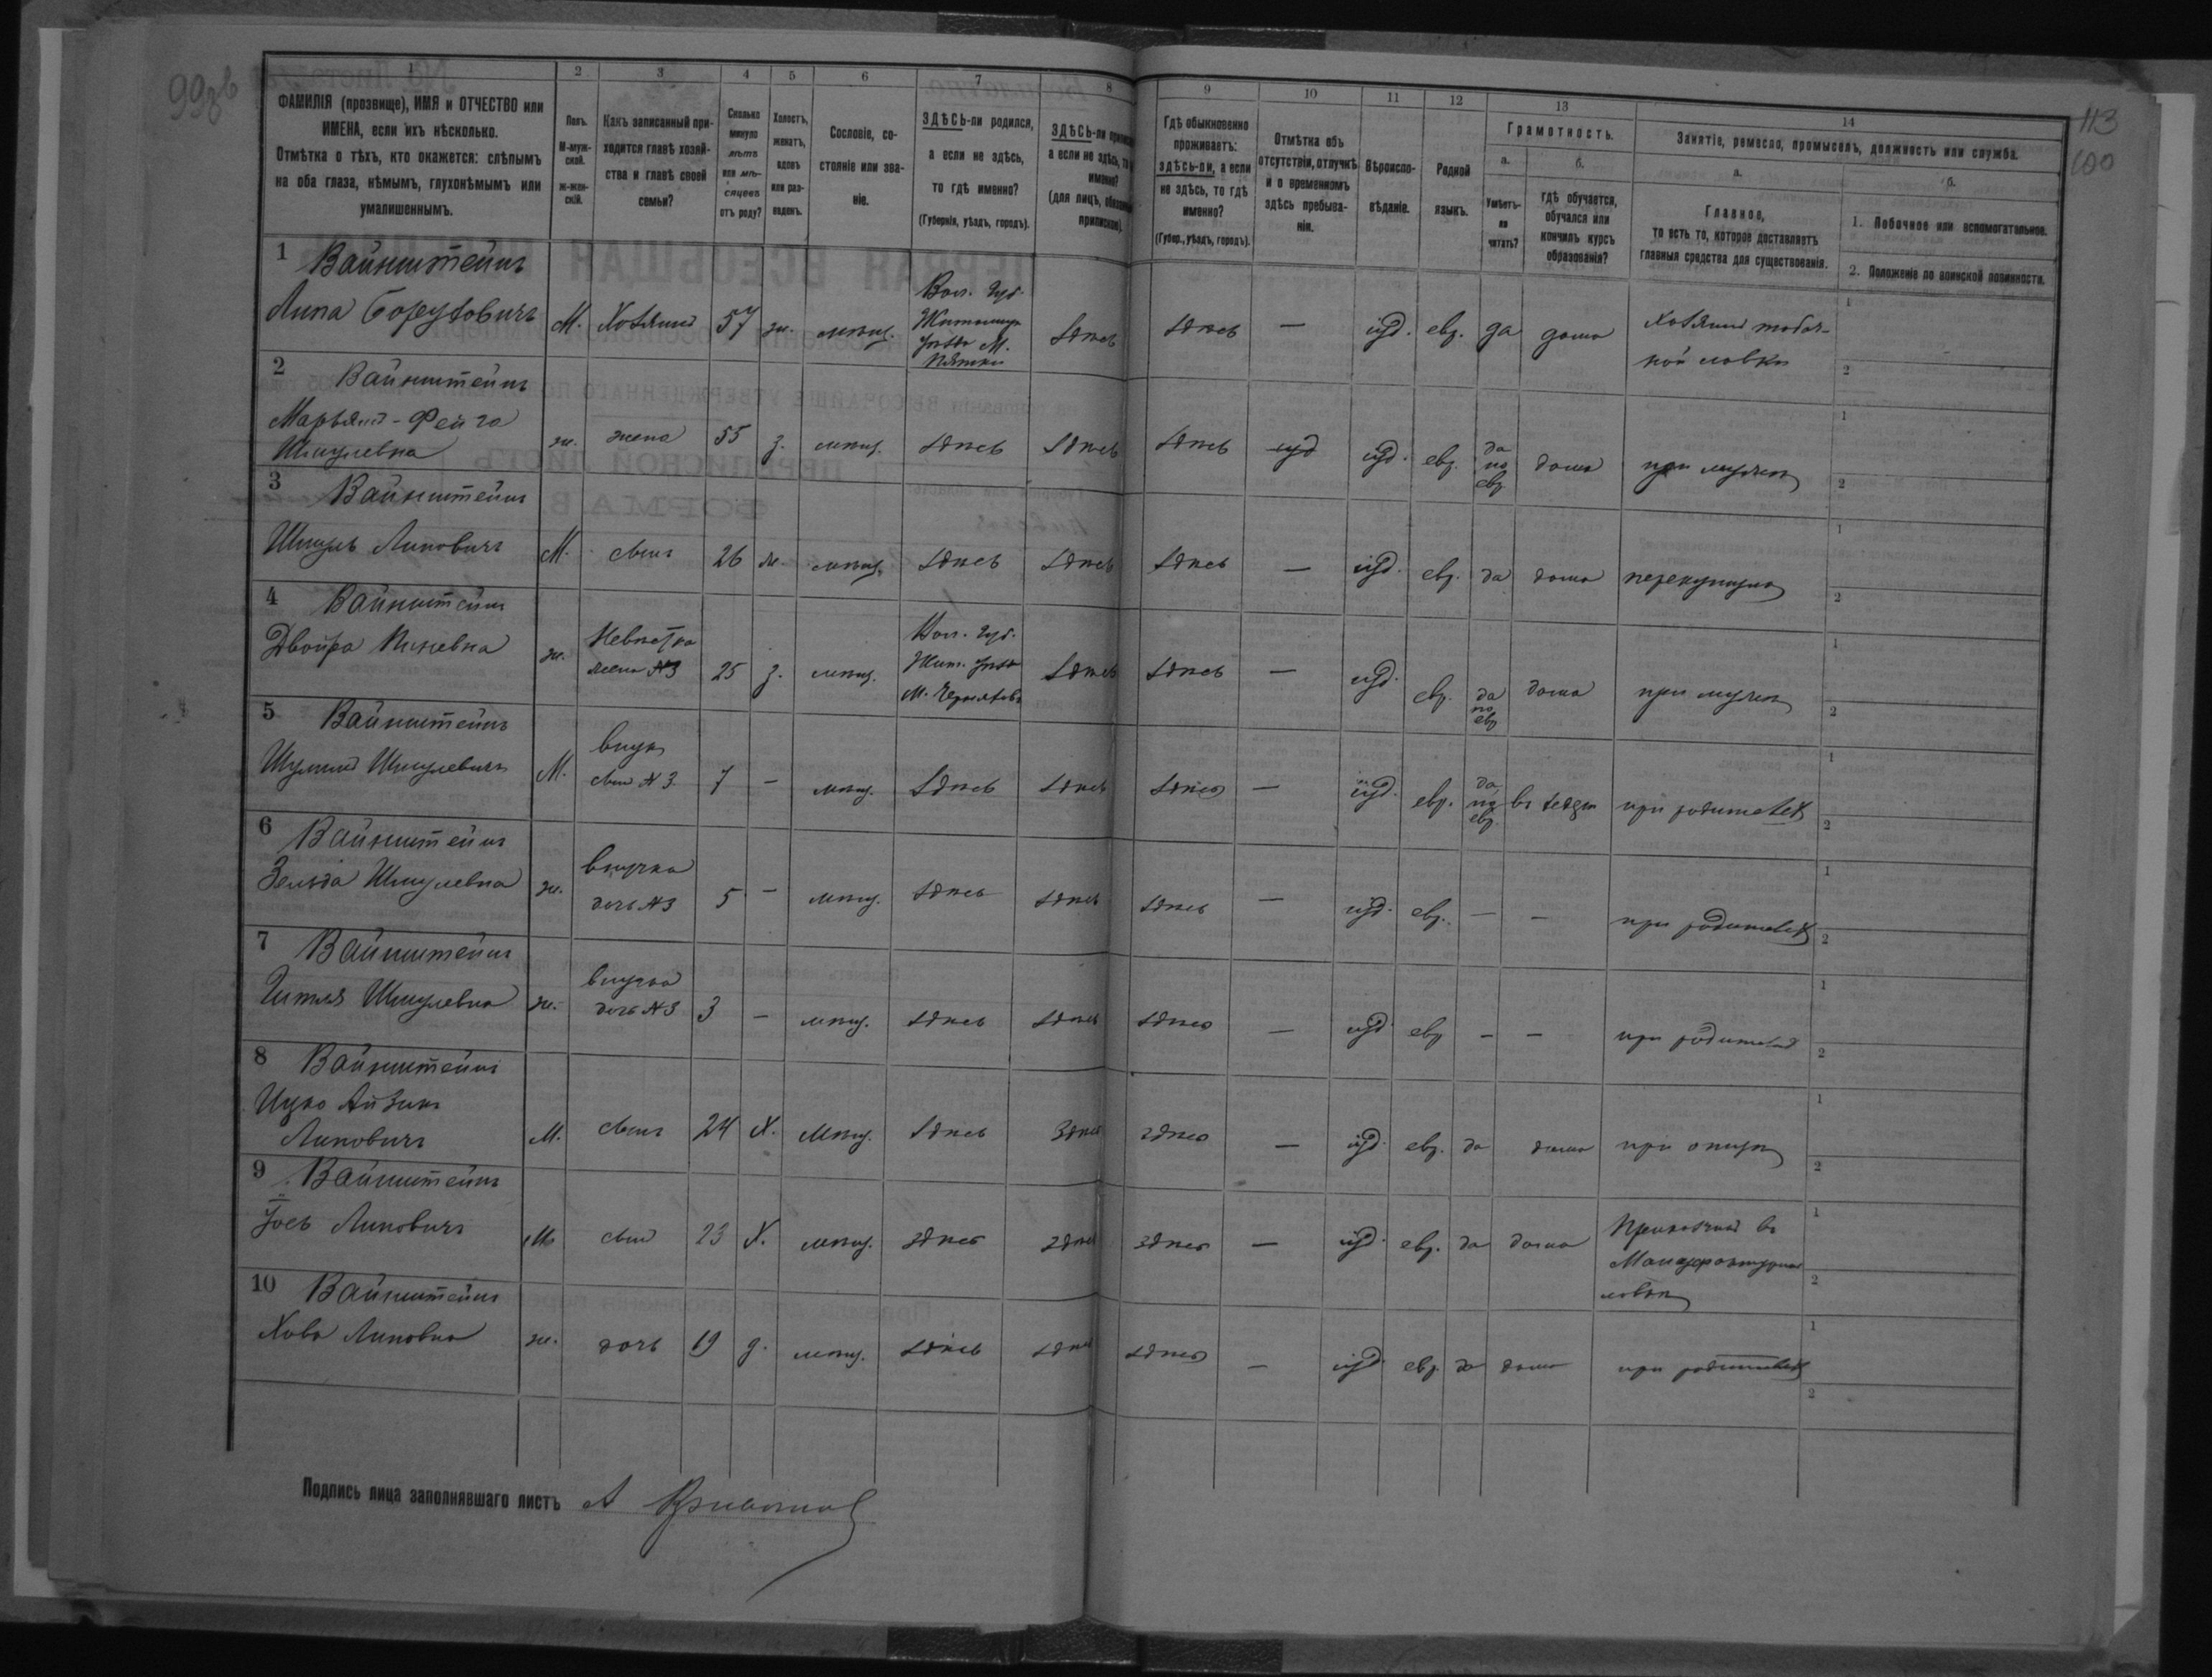 113
100
1 2 3 4 5 6 7 8 9 10 11 12 13 14
ФАМИЛІЯ (прозвище), ИМЯ и ОТЧЕСТВО или
ИМЕНА, если ихъ нѣсколько.
Отмѣтка о тѣхъ, кто окажется: слѣпымъ
на оба глаза, нѣмымъ, глухонѣмымъ или
умалишеннымъ.
Полъ.
М-муж-
ской.
ж-жен-
скій.
Какъ записанный при-
ходится главѣ хозяй-
ства и главѣ своей
семьи?
Сколько
минуло
лѣтъ
или мѣ-
сяцевъ
отъ роду?
Холостъ,
женатъ,
вдовъ
или раз-
веденъ.
Сословіе, со-
стояніе или зва-
ніе.
ЗДѢСЬ-ли родился,
а если не здѣсь,
то гдѣ именно?
(Губернія, уѣздъ, городъ).
ЗДѢСЬ-ли
а если не здѣсь,
именно?
(для лицъ,
Гдѣ обыкновенно
проживаетъ:
здѣсь-ли, а если
не здѣсь, то гдѣ
именно?
(Губер., уѣздъ, городъ).
Отмѣтка объ
отсутствіи, отлучкѣ
и о временномъ
здѣсь пребыва-
ніи.
Вѣроиспо-
вѣданіе.
Родной
языкъ.
Грамотность.
а.
Умѣетъ-
ли
читать?
б.
гдѣ обучается,
обучался или
кончилъ курсъ
образованія?
Занятіе, ремесло, промыселъ, должность или служба.
а.
Главное,
то есть то, которое доставляетъ
главныя средства для существованія.
б.
1. Побочное или вспомогательное.
2. Положеніе по воинской повинности.
1 Вайнштейнъ
Липа Боруховичъ М. Хозяинъ 57 ж. мѣщ. Вол. Губ.
Житомир.
уѣзда М.
Пятки
здѣсь здѣсь — іуд. евр. да дома Хозяинъ табач-
ной лавки
2 Вайнштейнъ
Марьямъ-Фейга
Шмулевна ж. жена 55 з. мѣщ. здѣсь здѣсь здѣсь іуд. евр. да
по
евр.
дома при мужѣ
3 Вайнштейнъ
Шмуль Липовичъ М. сынъ 26 ж. мѣщ. здѣсь здѣсь здѣсь — іуд. евр. да дома
4 Вайнштейнъ
Двойра ж. Невѣстка
жена №3 25 з. мѣщ. Вол. Губ.
Жит. уѣзд.
М. Черняховъ
здѣсь здѣсь — іуд. евр. да
по
евр.
дома при мужѣ
5 Вайнштейнъ
Шмулевичъ М. внукъ
сынъ №3. 7 — мѣщ. здѣсь здѣсь здѣсь — іуд. евр. да
по
евр.
въ хедерѣ при родителях
6 Вайнштейнъ
Зельда Шмулевна ж. внучка
дочь №3 5 — мѣщ. здѣсь здѣсь здѣсь — іуд. евр. — — при родителях
7 Вайнштейнъ
Шмулевна ж. внучка
дочь №3 3 — мѣщ. здѣсь здѣсь здѣсь — іуд. евр — — при родителях
8 Вайнштейнъ
Ицко Айзикъ
Липовичъ М. сынъ 24 Х. мѣщ. здѣсь здѣсь здѣсь — іуд. евр. да дома при отцѣ
9 Вайнштейнъ
Липовичъ М. сынъ 23 Х. мѣщ. здѣсь здѣсь здѣсь — іуд. евр. да дома Приказчикъ въ
Мануфактурной
лавкѣ
10 Вайнштейнъ
Хава Липовна ж. дочь 19 д. мѣщ. здѣсь здѣсь здѣсь — іуд. евр. да дома при родителях
Подпись лица заполнявшаго листъ А